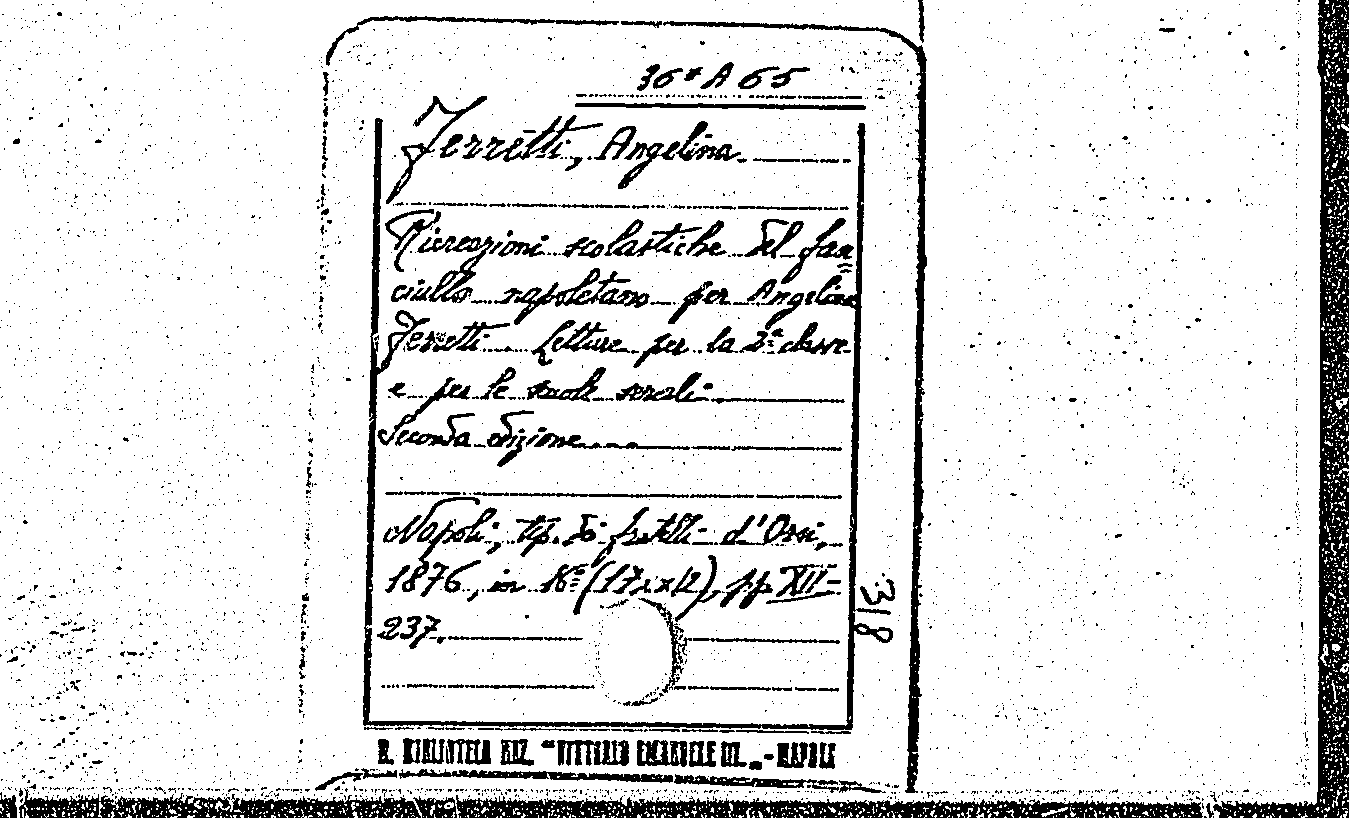 36* A 65
Ferretti, Angelina
Ricreazioni scolastiche del fan=
ciullo napoletano per Angelina
Ferretti. Letture per la 2ª classe
e per le scuole serali.
Seconda edizione....
Napoli, tip. di fratelli d'Orsi,
1876, in 16º (17,2x12), pp. XII-
237.
318
R. BIBLIOTECA NAZ. "VITTORIO EMANUELE III„ - NAPOLI